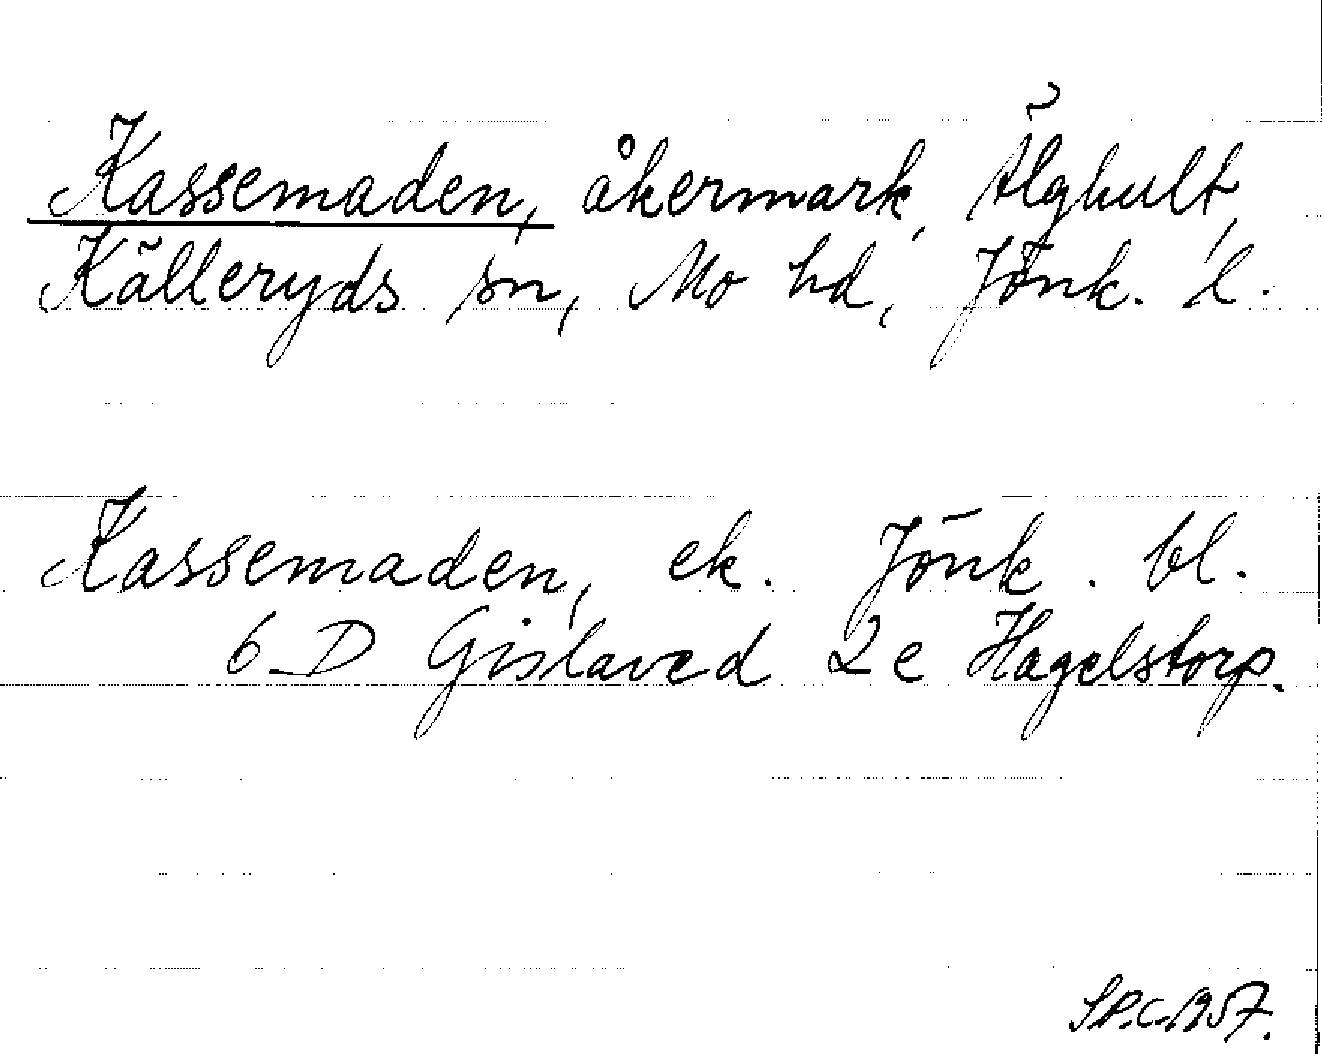 Kassemaden, åkermark, Älghult,
Källeryds sn, Mo hd, Jönk. l.
Kassemaden, ek. Jönk. bl.
6 D Gislaved 2e Hagelstorp.
S.P.C. 1957.